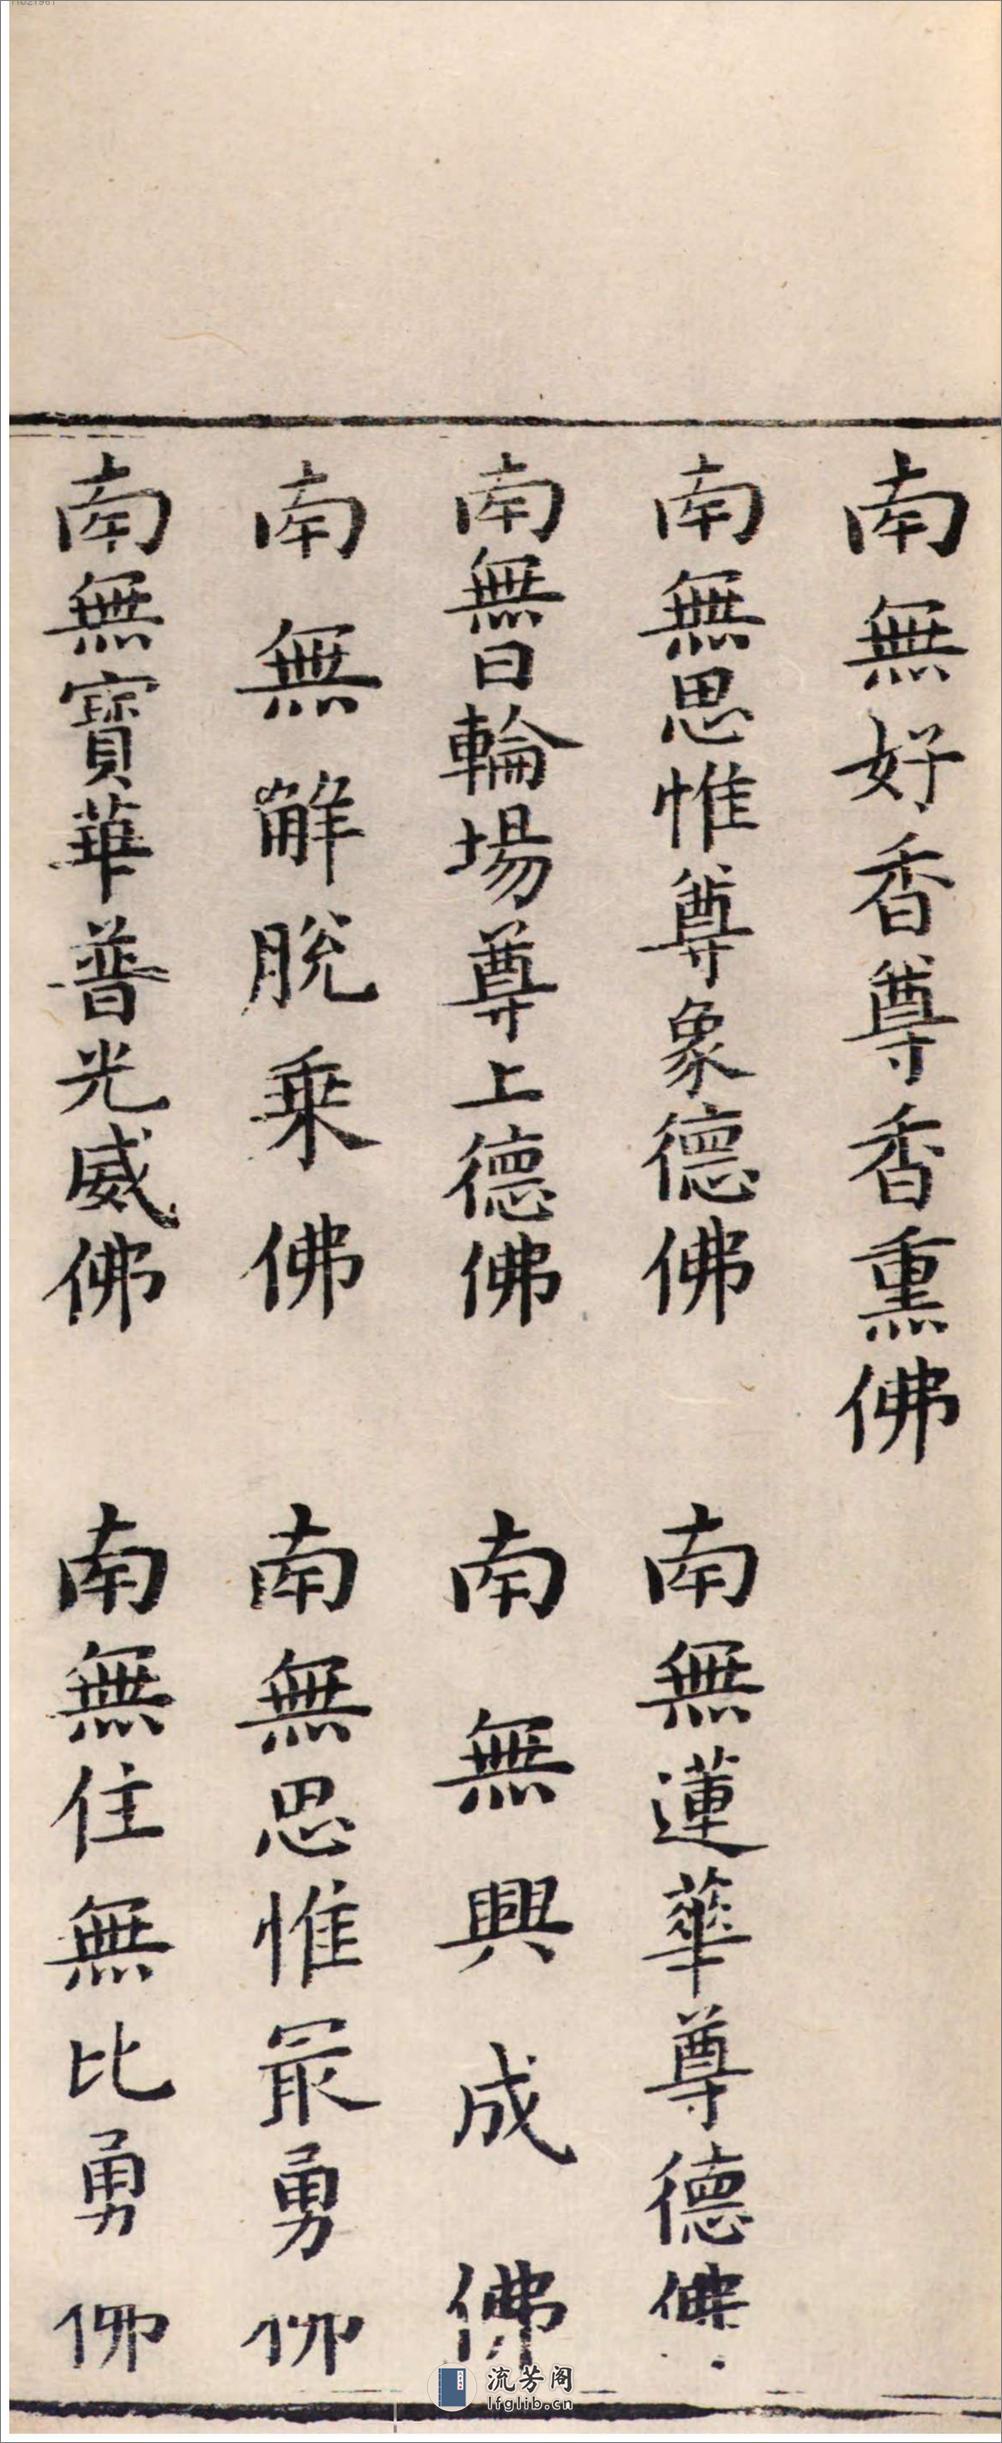 南無好香尊香熏佛
南無思惟尊象德佛
南無蓮華尊德佛
南無日輪場尊上德佛
南無興成佛
南無解脫乘佛
南無思惟最勇佛
南無寶華普光威佛
南無住無比勇佛
流芳阁
lfglib.cn